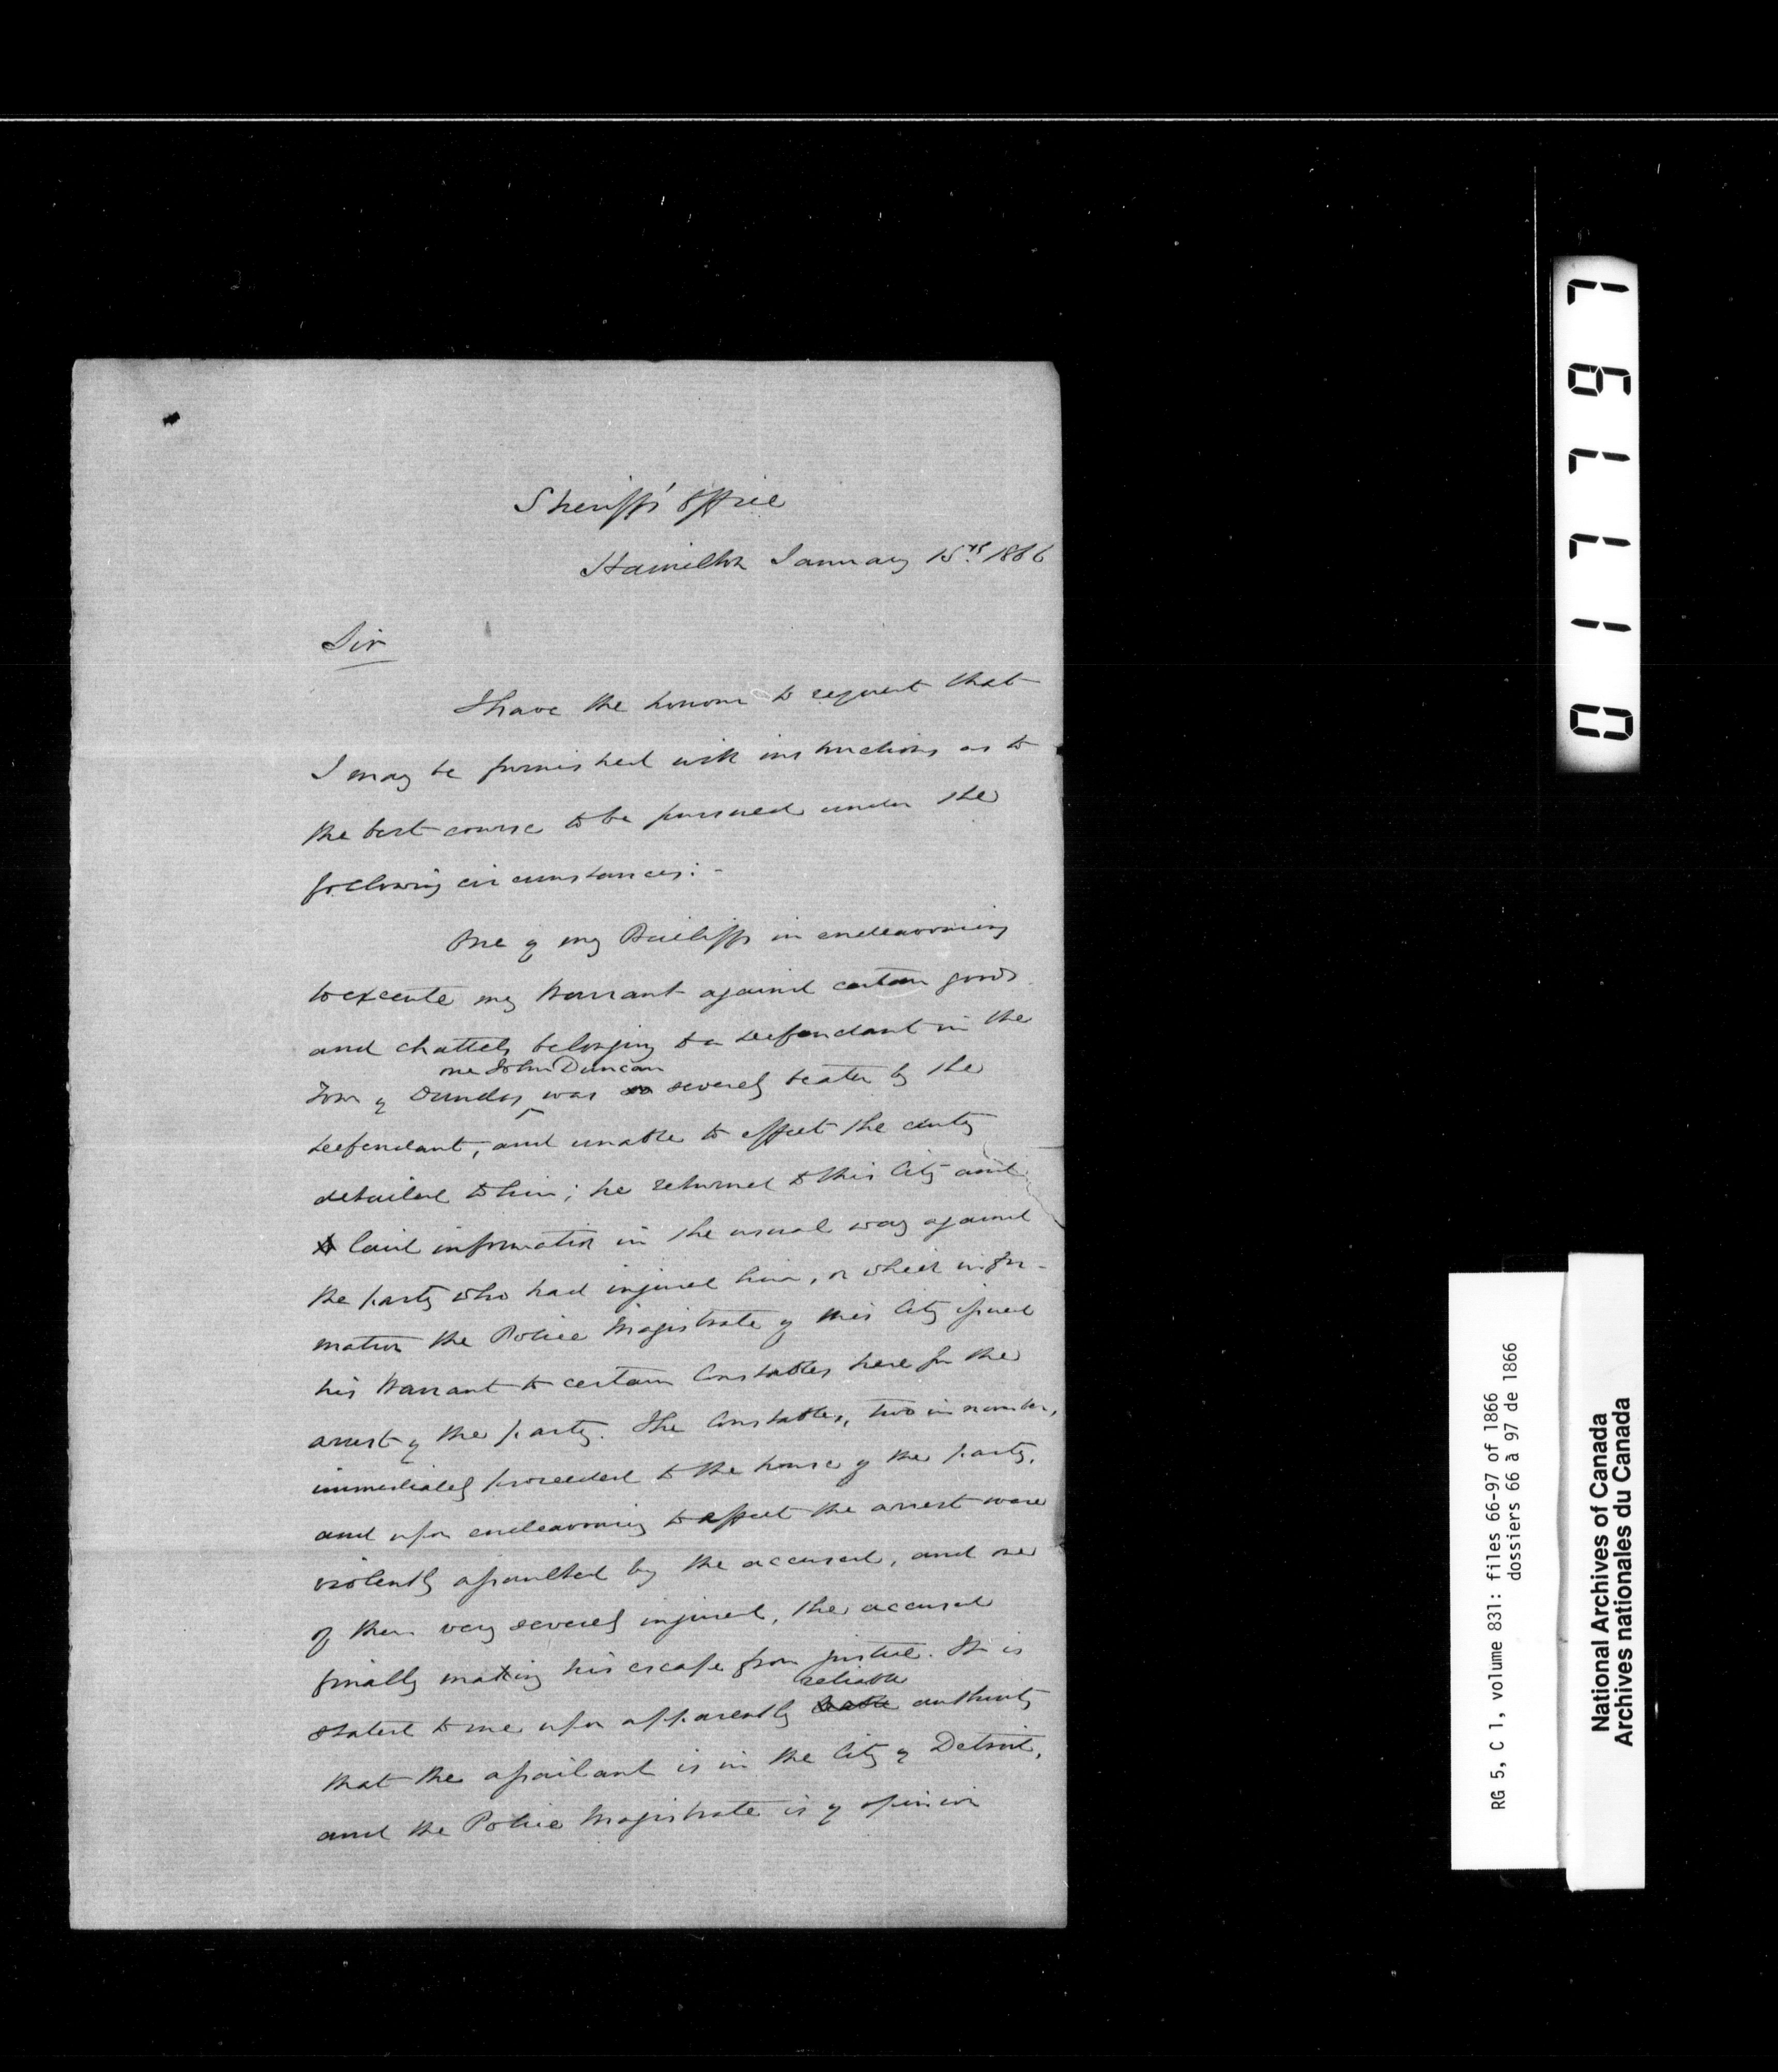 Sheriff's Office
Hamilton January 15th 1866
Sir
I have the honour to request that
I may be furnished with instructions as to
the best course to be pursued under the
following circumstances:-
One of my Bailiffs in endeavouring
to execute my Warrant against certain goods
and chattels belonging to a defendant in the
one John Duncan
Town of Dundas was so severely beaten by the
defendant, and unable to effect the duty
detailed to him; he returned to this City and
laid information in the usual way against
the party who had injured him, on which infor-
mation the Police Magistrate of this City issued
his Warrant to certain Constables here for the
arrest of the party. The Constables, two in number,
immediately proceeded to the house of the party,
and upon endeavouring to effect the arrest were
violently assaulted by the accused, and one
of them very severely injured, the accused
finally making his escape from justice. It is
reliable
stated to me upon apparently authority
that the assailant is in the City of Detroit,
and the Police Magistrate is of opinion
017767
RG 5, C 1, volume 831: files 66-97 of 1866
dossiers 66 à 97 de 1866
National Archives of Canada
Archives nationales du Canada